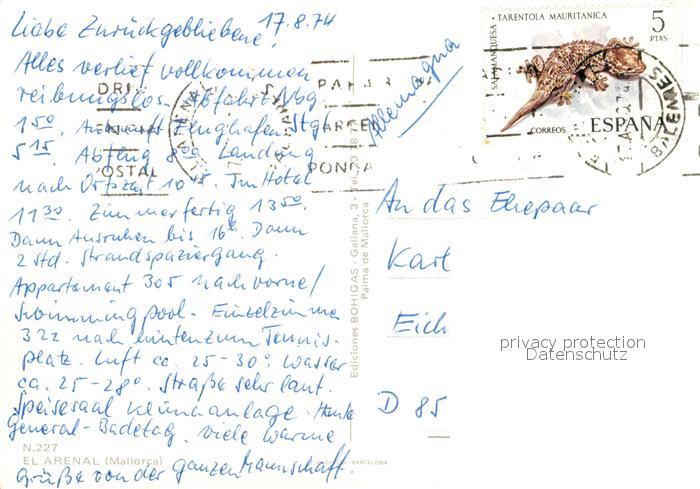 17.8.74
Liebe Zurückgebliebene,
Alles verlief vollkommen
reibungslos. Abfahrt Nbg.
1⁵⁰. Ankunft Flughafen Stgt
5¹⁵. Abflug 8⁰⁰ Landung
nach Ortszeit 10⁴⁵. Im Hotel
11³⁰. Zimmer fertig 13⁵⁰.
Dann Ausruhen bis 16ʰ. Dann
2 Std. Strandspaziergang.
Appartement 305 nach vorne/
Swimmingpool - Einzelzimmer
322 nach hinten zum Tennis-
platz. Luft ca. 25-30°. Wasser
ca. 25-28°. Straße sehr laut.
Speisesaal Klimaanlage. Heute
General-Badetag. Viele warme
Grüße von der ganzen Mannschaft.
N.227
EL ARENAL (Mallorca)
Ediciones BOHIGAS - Galiana, 3 -
Palma de Mallorca
BARCELONA
Allemagna
SALAMANQUESA
TARENTOLA MAURITANICA
5
PTAS
CORREOS
ESPAÑA
OSTAL
PONGA
An das Ehepaar
Karl
Eich
D 85
privacy protection
Datenschutz